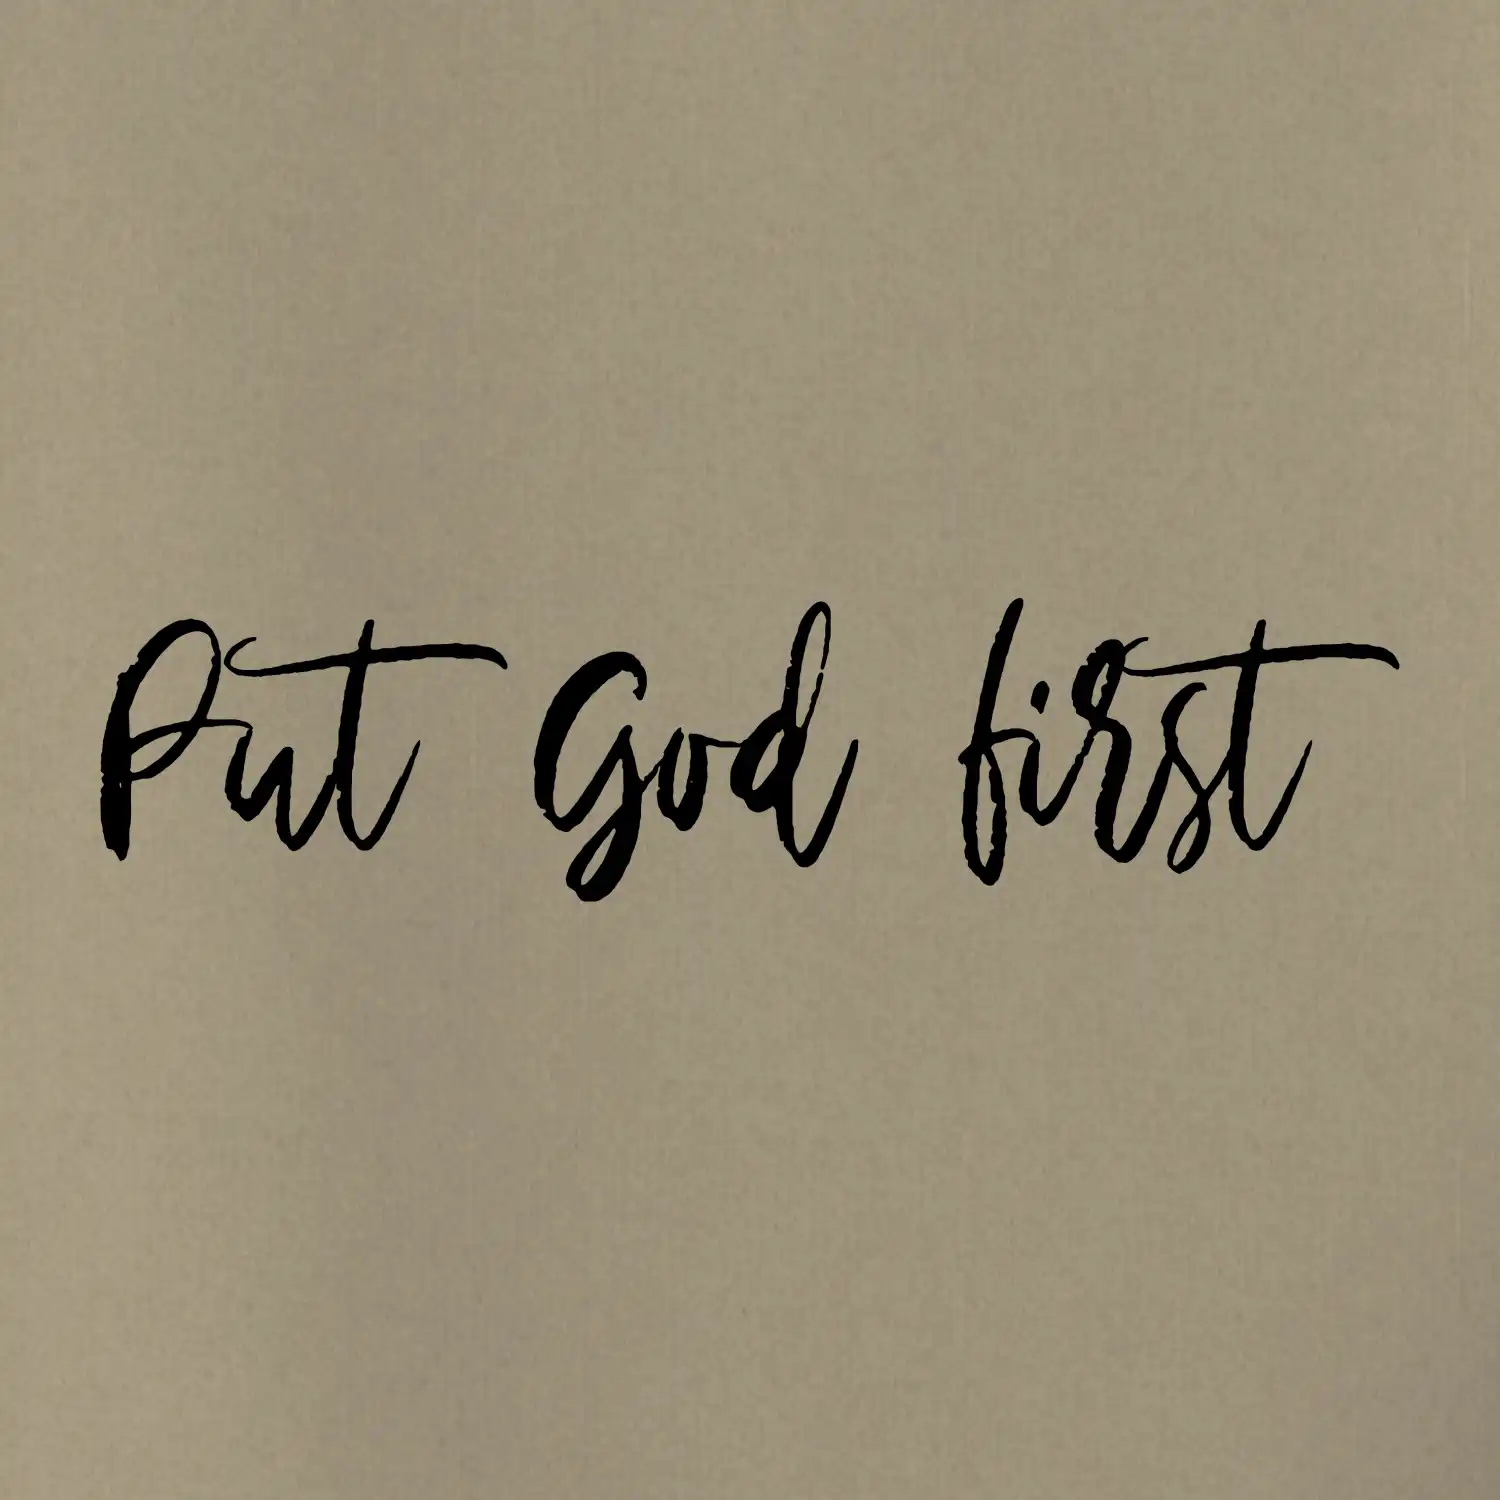 Put God first